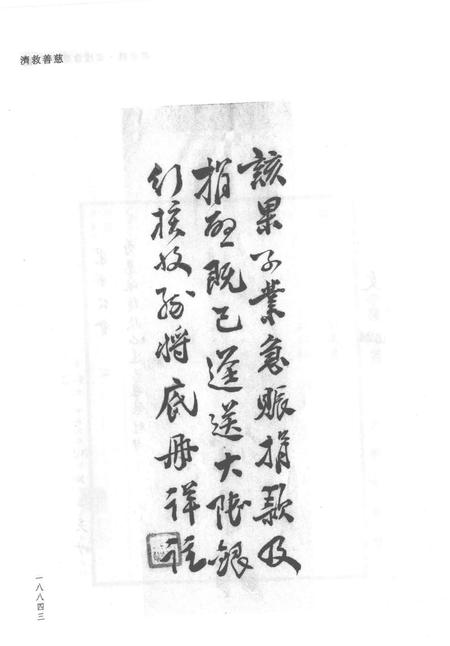 慈善救濟
該果子業急賑捐款及
捐冊既已逕送大陸銀
行核收孫將底冊詳註
一八八四三